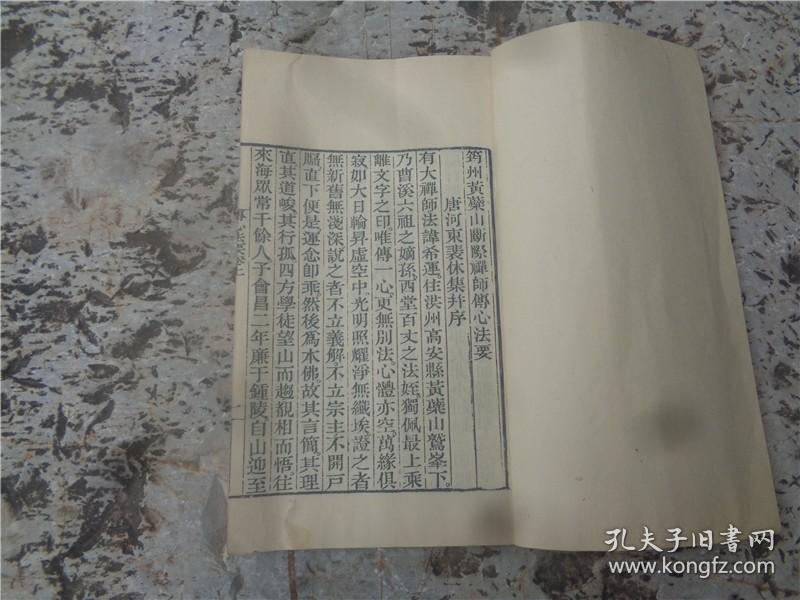 筠州黃蘗山斷際禪師傳心法要
唐河東裴休集幷序
有大禪師法諱希運住洪州高安縣黃蘗山鷲峯下。
乃曹溪六祖之嫡孫西堂百丈之法姪獨佩最上乘
離文字之印唯傳一心更無別法心體亦空。萬緣俱
寂如大日輪昇虛空中光明照耀淨無纖埃證之者
無新舊無淺深說之者不立義解不立宗主不開戸
牖直下便是運念卽乖然後爲本佛。故其言簡。其理
直其道峻其行孤四方學徒望山而趨覩相而悟往
來海眾常千餘人予會昌二年廉于鍾陵自山迎至
孔夫子旧书网
www.kongfz.com